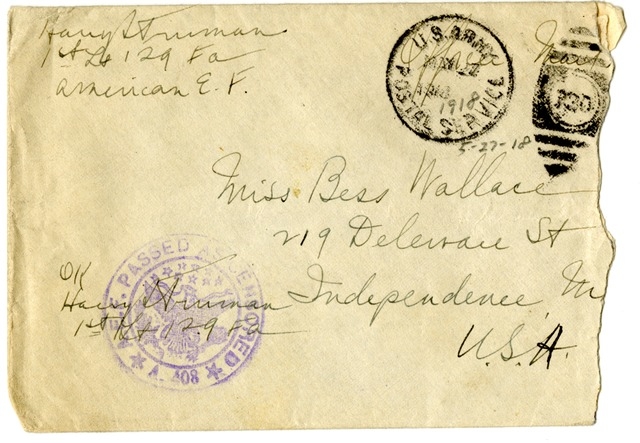 Harry S Truman
1st Lt 129 Fa
American E. F.
Officer's Mail
U.S. ARMY
POSTAL SERVICE
1918
5-27-18
Miss Bess Wallace
219 Deleware St
Independence Mo
U.S.A.
OK
Harry S Truman
1st Lt 129 Fa
A.E.F. PASSED AS CENSORED
A. 408